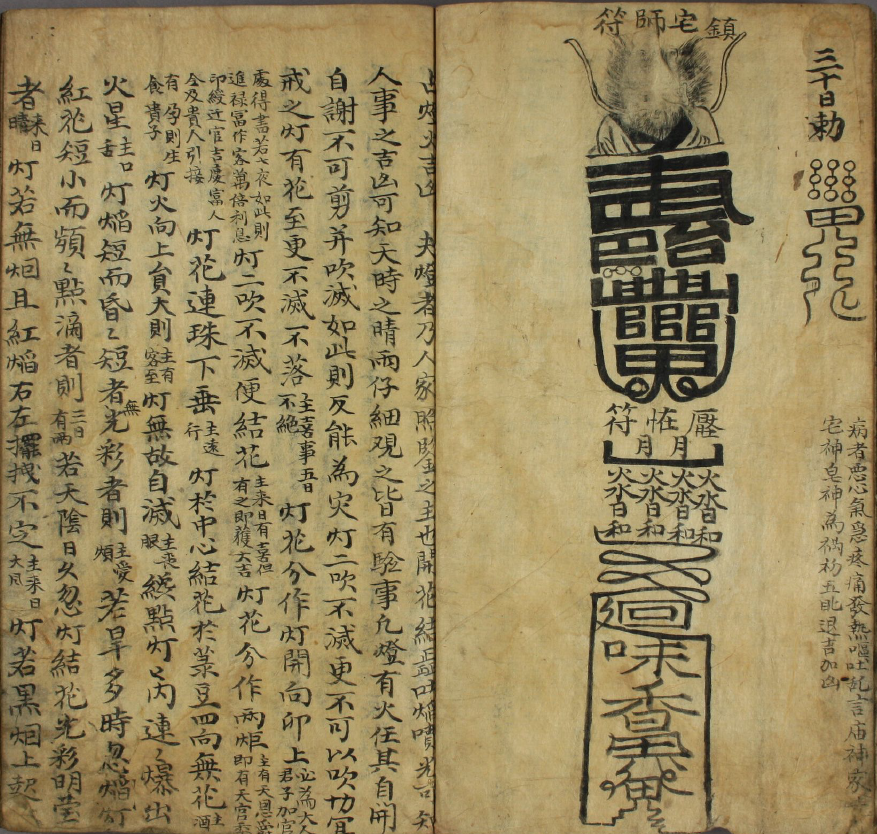 三十日勅
病者惡心氣急疼痛發熱嘔吐乱言庙神家
宅神皂神為祸初五退吉加凶
鎮宅師符
壓恠符
月月
火沓日和火沓日和火沓日和火沓日和
廻
味
香
占灯火吉凶 夫燈者乃人家照之主也開花結蕋吐焰噴光吉
人事之吉凶可知天時之晴雨仔細观之皆有驗事凢燈有火任其自開
自謝不可剪并吹滅如此則反能為灾灯二吹不滅更不可以吹切宜
戒之灯有花至更不滅不落主喜事五日不絶灯花分作灯開向卯上必為大人君子加官
處得書若七夜如此則進禄冨作客萬倍利息灯二吹不滅便結花主来日有喜但有之即獲大吉灯花分作兩炬主有天恩即有天官
印綬近官吉慶富人全及貴人引接灯花連珠下垂主遠行灯於中心結花於菉豆四向無花主酒
有孕則生貴子食灯火向上員大則主有客至灯無故自滅主喪服綫點灯芯内連〻爆出
火星主口舌灯焰短而昏〻短者無光彩者則主愛煩若旱多時忽焰灯
紅花短小而頻〻點滴者則三日有雨若天陰日久忽灯結花光彩明莹
者来日晴灯若無烟且紅焰右左擺拽不定主来日大風灯若黑烟上起